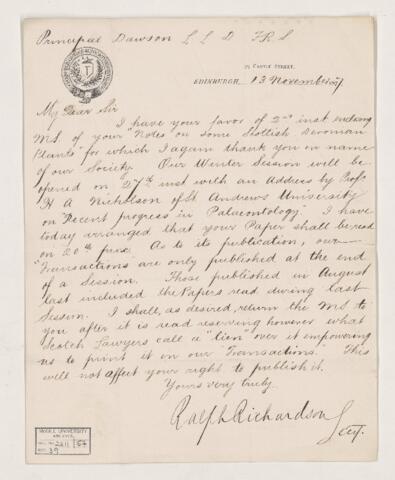 Principal Dawson L L D F R S
CASTLE STREET,
EDINBURGH, 13 November 77
My Dear Sir
I have your favor of 2nd inst enclosing
MS. of your "Notes on some Scottish Devonian
Plants" for which I again thank you in name
of our Society. Our Winter Session will be
opened on 27th inst with an Address by Profr
H A Nicholson of St Andrews University
on "Recent progress in Palaeontology". I have
today arranged that your Paper shall be read
on 20th prox. As to its publication, our
"Transactions" are only published at the end
of a Session. Those published in August
last included the Papers read during last
Session. I shall, as desired, return the MS to
you after it is read reserving however what
Scotch Lawyers call a "lien" over it empowering
us to print it in our "Transactions". This
will not affect your right to publish it.
Yours very truly
Ralph Richardson
Secy.
McGILL UNIVERSITY
ARCHIVES
2211 54
39